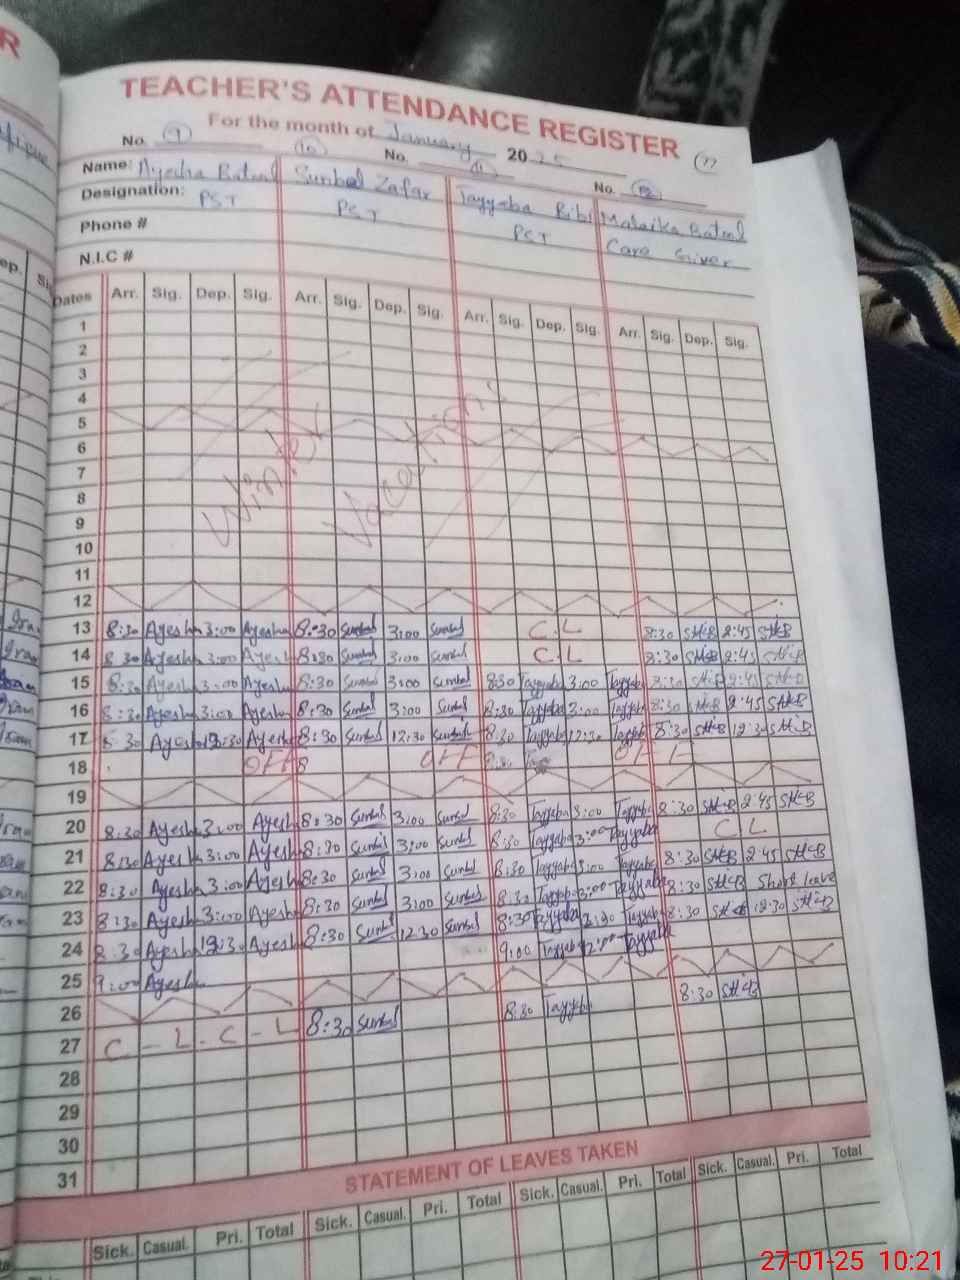 R
TEACHER'S ATTENDANCE REGISTER
For the month of January 2025
No. 9 10 No. 11 No. 12
Name: Ayesha Batool Sunbal Zafar Tayyaba Bibi Malaika Batool
Designation: PST PST PST Care Giver
Phone #
N.I.C #
Dates Arr. Sig. Dep. Sig. Arr. Sig. Dep. Sig. Arr. Sig. Dep. Sig. Arr. Sig. Dep. Sig.
1
2
3
4
5
6
7
8
9
10
11
12
Winter Vacations
13 8:30 Ayesha 3:00 Ayesha 8:30 Sunbal 3:00 Sunbal C L 8:30 SH-B 2:45 SH-B
14 8:30 Ayesha 3:00 Ayesha 8:30 Sunbal 3:00 Sunbal C L 8:30 SH-B 2:45 SH-B
15 8:30 Ayesha 3:00 Ayesha 8:30 Sunbal 3:00 Sunbal 8:30 Tayyaba 3:00 Tayyaba 8:30 SH-B 2:45 SH-B
16 8:30 Ayesha 3:00 Ayesha 8:30 Sunbal 3:00 Sunbal 8:30 Tayyaba 3:00 Tayyaba 8:30 SH-B 2:45 SH-B
17 8:30 Ayesha 12:30 Ayesha 8:30 Sunbal 12:30 Sunbal 8:30 Tayyaba 12:30 Tayyaba 8:30 SH-B 12:30 SH-B
18 OFF 8 OFF 8:30 OFF
19
20 8:30 Ayesha 3:00 Ayesha 8:30 Sunbal 3:00 Sunbal 8:30 Tayyaba 3:00 Tayyaba 8:30 SH-B 2:45 SH-B
21 8:30 Ayesha 3:00 Ayesha 8:30 Sunbal 3:00 Sunbal 8:30 Tayyaba 3:00 Tayyaba C L
22 8:30 Ayesha 3:00 Ayesha 8:30 Sunbal 3:00 Sunbal 8:30 Tayyaba 3:00 Tayyaba 8:30 SH-B 2:45 SH-B
23 8:30 Ayesha 3:00 Ayesha 8:30 Sunbal 3:00 Sunbal 8:30 Tayyaba 3:00 Tayyaba 8:30 SH-B Short leave
24 8:30 Ayesha 12:30 Ayesha 8:30 Sunbal 12:30 Sunbal 8:30 Tayyaba Tayyaba 8:30 SH-B 12:30 SH-B
25 9:00 Ayesha 9:00 Tayyaba 2:00 Tayyaba
26
27 C - L - C - L 8:30 Sunbal 8:30 Tayyaba 8:30 SH-B
28
29
30
31
STATEMENT OF LEAVES TAKEN
Sick. Casual. Pri. Total Sick. Casual. Pri. Total Sick. Casual. Pri. Total Sick. Casual. Pri. Total
27-01-25 10:21